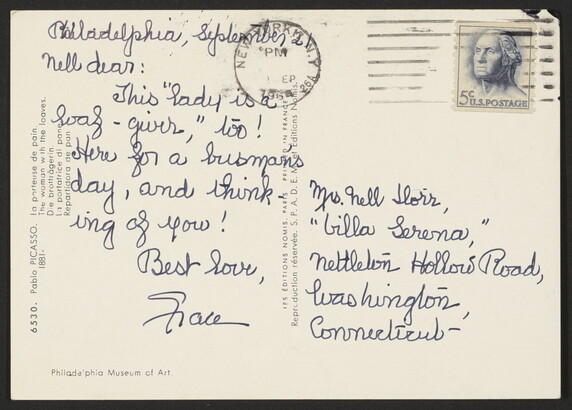 Philadelphia, September 2
Nell dear:
This "lady is a
loaf-giver," too!
Here for a busman's
day, and think-
ing of you!
Best love,
Grace
Mrs. Nell Dorr,
"Villa Serena,"
Nettleton Hollow Road,
Washington,
Connecticut-
NEW YORK, N.Y.
PM
SEP
5c U.S. POSTAGE
6530. Pablo PICASSO. La porteuse de pain.
1881-
The woman with the loaves.
Die brotträgerin.
La portatrice di pane
Repartidora de pan
LES ÉDITIONS NOMIS, PARIS PRINTED IN FRANCE
Reproduction réservée. S.P.A.D.E.M. et Editions Nomis.
Philadelphia Museum of Art.